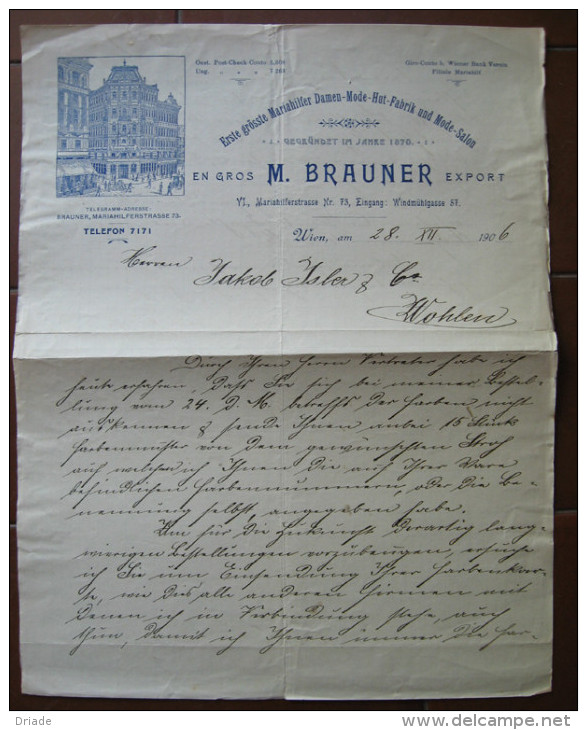 Oest. Post-Check-Conto
Ung.
Giro-Conto b. Wiener Bank Verein
Filiale Mariahilf
Erste grösste Mariahilfer Damen-Mode-Hut-Fabrik und Mode-Salon
GEGRÜNDET IM JAHRE 1870.
EN GROS M. BRAUNER EXPORT
VI., Mariahilferstrasse Nr. 73, Eingang: Windmühlgasse
TELEGRAMM-ADRESSE:
BRAUNER, MARIAHILFERSTRASSE 73.
TELEFON 7171
Wien, am 28. XII. 1906
Herren
Jakob Isler & Co
Wohlen
Durch Ihren Herrn Vertreter habe ich
heute erfahren, dass Sie sich bei meiner Bestel-
lung vom 24. d. M. betreffs der Farben nicht
auskennen & sende Ihnen anbei 15 Stück
Farbenmuster von dem gewünschten Stroh
auf welchen ich Ihnen die auf Ihrer Ware
befindlichen Farbennummern, oder die Be-
nennung selbst, angegeben habe.
Um für die Zukunft derartig lang-
wierigen Bestellungen vorzubeugen, ersuche
ich Sie um Einsendung Ihrer Farbenkar-
te, wie dies alle anderen Firmen mit
denen ich in Verbindung stehe, auch
thun, damit ich Ihnen immer die Far-
Driade
www.delcampe.net